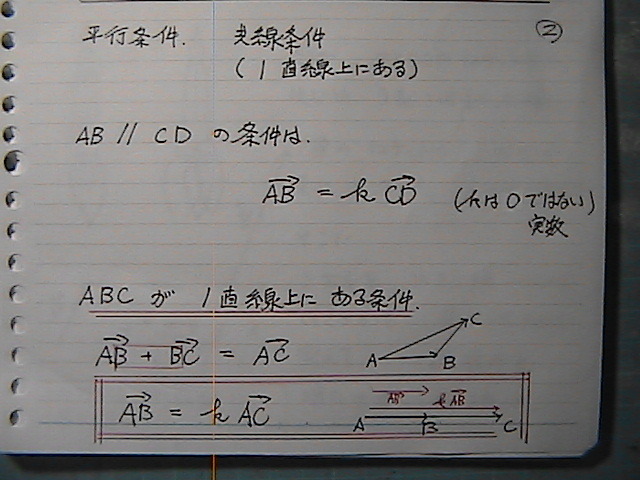 平行条件. 共線条件 ②
(1直線上にある)
AB // CD の条件は.
→AB = k →CD (kは0ではない)
実数
ABC が 1直線上にある条件.
→AB + →BC = →AC
A B C
→AB = k →AC
→AB k→AB
A B C